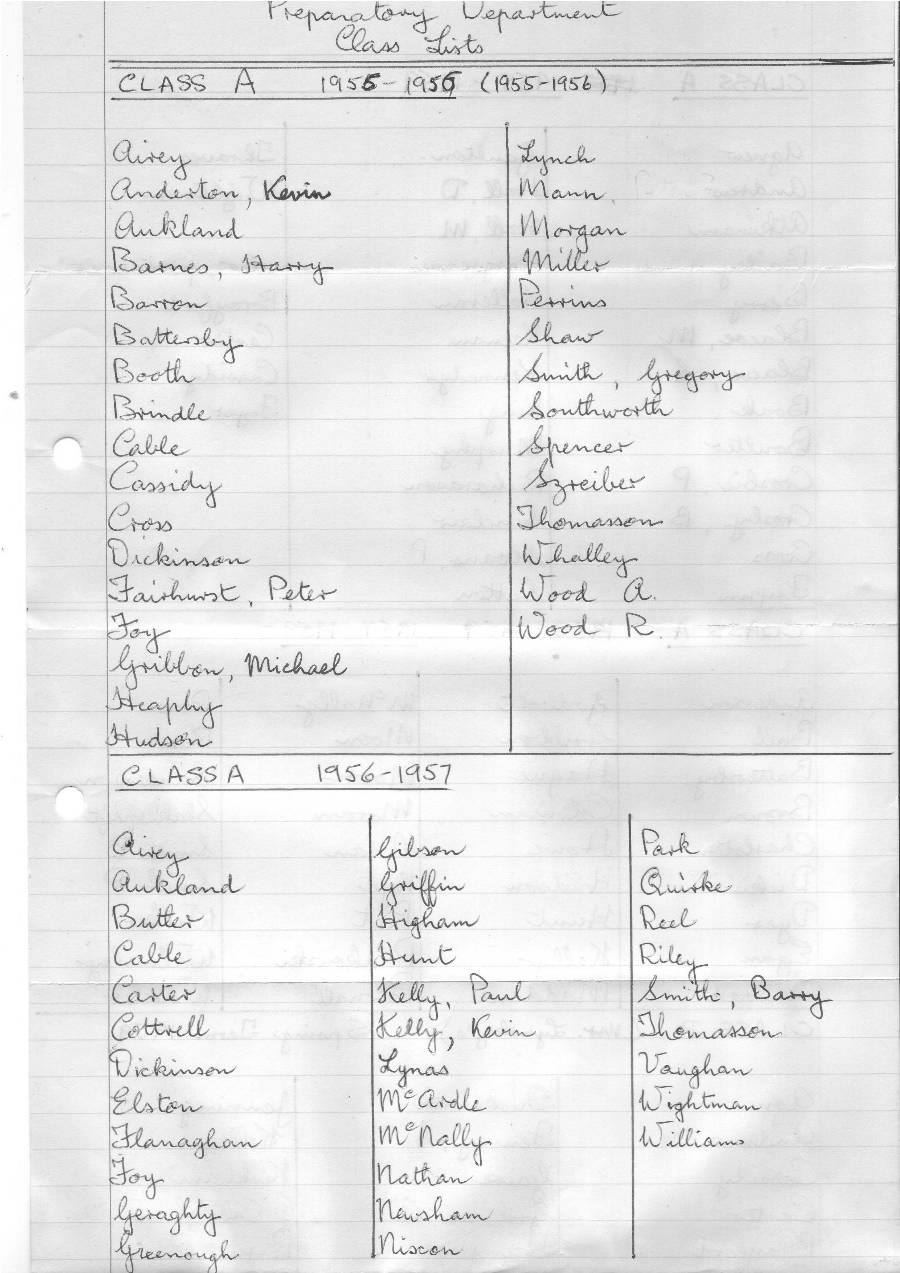 Preparatory Department
Class Lists
CLASS A 1955-1956 (1955-1956)
Airey
Anderton, Kevin
Aukland
Barnes, Harry
Barron
Battersby
Booth
Brindle
Cable
Cassidy
Cross
Dickinson
Fairhurst, Peter
Foy
Gribbon, Michael
Heaphy
Hudson
Lynch
Mann
Morgan
Miller
Perrins
Shaw
Smith, Gregory
Southworth
Spencer
Szreiber
Thomasson
Whalley
Wood A.
Wood R.
CLASS A 1956-1957
Airey
Aukland
Butter
Cable
Carter
Cottrell
Dickinson
Elston
Flanaghan
Foy
Geraghty
Greenough
Gibson
Griffin
Higham
Hunt
Kelly, Paul
Kelly, Kevin
Lynas
McArdle
McNally
Nathan
Newsham
Nixon
Park
Quirke
Reel
Riley
Smith, Barry
Thomasson
Vaughan
Wightman
Williams